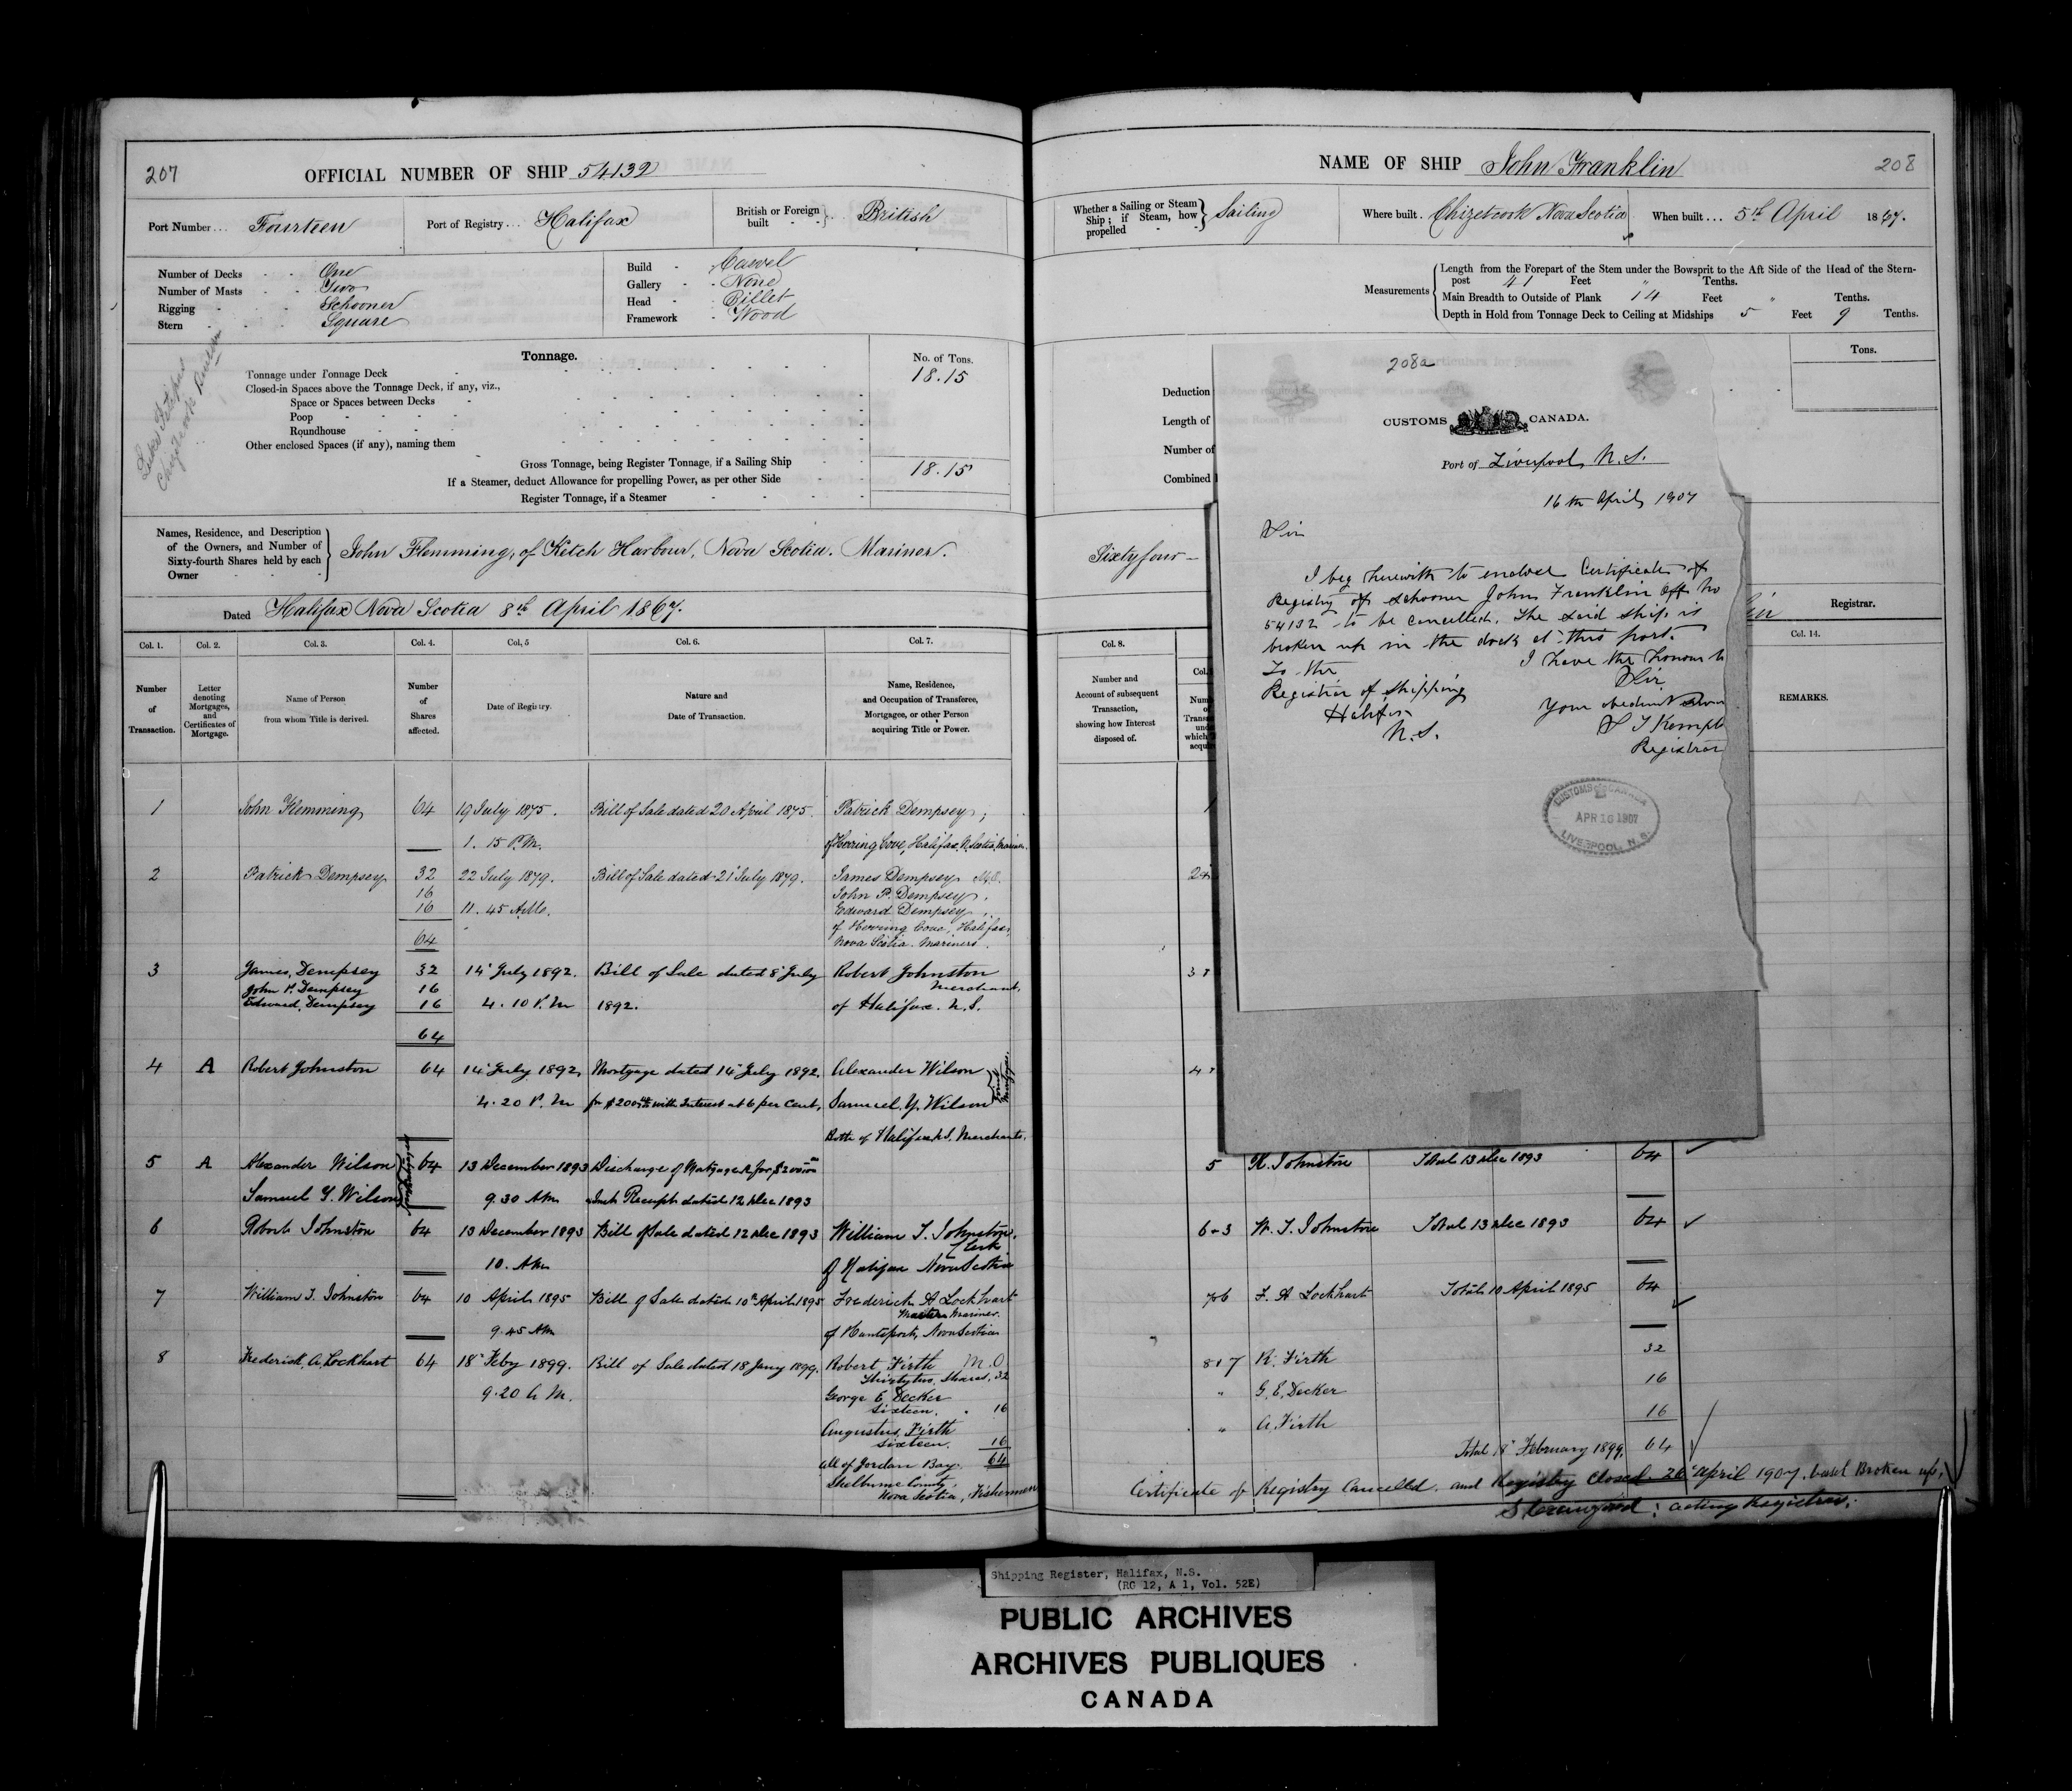 207
OFFICIAL NUMBER OF SHIP 54132
Port Number ... Fourteen
Port of Registry ... Halifax
British or Foreign built - - } .. British
Number of Decks - - One
Number of Masts - - Two
Rigging - - - Schooner
Stern - - - Square
Build - Carvel
Gallery - - None
Head - Billet
Framework - Wood
Chizetcook Builder
Tonnage.
No. of Tons.
Tonnage under Tonnage Deck - 18.15
Closed-in Spaces above the Tonnage Deck, if any, viz.,
Space or Spaces between Decks -
Poop
Roundhouse
Other enclosed Spaces (if any), naming them
Gross Tonnage, being Register Tonnage, if a Sailing Ship 18.15
If a Steamer, deduct Allowance for propelling Power, as per other Side
Register Tonnage, if a Steamer
Names, Residence, and Description
of the Owners, and Number of
Sixty-fourth Shares held by each
Owner
John Flemming, of Ketch Harbour, Nova Scotia. Mariner.
Dated Halifax Nova Scotia 8th April 1867.
Col. 1. Col. 2. Col. 3. Col. 4. Col. 5 Col. 6. Col. 7.
Number of Transaction.
Letter denoting Mortgages, and Certificates of Mortgage.
Name of Person from whom Title is derived.
Number of Shares affected.
Date of Registry.
Nature and Date of Transaction.
Name, Residence, and Occupation of Transferee, Mortgagee, or other Person acquiring Title or Power.
1 John Flemming 64 19 July 1875. Bill of Sale dated 20 April 1875. Patrick Dempsey,
1. 15 P.M. of Herring Cove, Halifax, N. Scotia, Mariner.
2 Patrick Dempsey 32 22 July 1879. Bill of Sale dated 21st July 1879. James Dempsey M.O.
16 John P. Dempsey,
16 11. 45 A.M. Edward Dempsey
of Herring Cove, Halifax,
64 Nova Scotia. Mariners.
3 James Dempsey 32 14 July 1892. Bill of Sale dated 8 July Robert Johnston
John P. Dempsey 16 Merchant,
Edward Dempsey 16 4. 10 P.M 1892. of Halifax. N.S.
64
4 A Robert Johnston 64 14 July 1892, Mortgage dated 14 July 1892. Alexander Wilson
4. 20 P.M for $200 with Interest at 6 per Cent, Samuel Y. Wilson
Joint Mortgagees
Both of Halifax N.S. Merchants.
5 A Alexander Wilson 64 13 December 1893 Discharge of Mortgage A for $200
Samuel Y. Wilson 9.30 AM Receipt dated 12 Dec 1893
6 Robert Johnston 64 13 December 1893 Bill of Sale dated 12 Dec 1893 William T. Johnston,
Clerk
10. AM of Halifax Nova Scotia
7 William T. Johnston 64 10 April 1895 Bill of Sale dated 10th April 1895 Frederick A Lockhart
Master Mariner.
9.45 AM of Hantsport, Nova Scotia
8 Frederick A. Lockhart 64 18 Feby 1899. Bill of Sale dated 18 Jany 1899. Robert Firth M.O.
Thirtytwo Shares, 32
9.20 A M. George E. Decker
Sixteen. " 16
Augustus Firth
Sixteen. 16
All of Jordan Bay. 64
Shelburne County,
Nova Scotia, Fishermen
NAME OF SHIP John Franklin
208
Whether a Sailing or Steam Ship; if Steam, how propelled } Sailing
Where built . Chizetcook Nova Scotia
When built ... 5th April 1867.
Measurements
Length from the Forepart of the Stem under the Bowsprit to the Aft Side of the Head of the Stern-
post 41 Feet " Tenths.
Main Breadth to Outside of Plank 14 Feet " Tenths.
Depth in Hold from Tonnage Deck to Ceiling at Midships 5 Feet 9 Tenths.
Tons.
Deduction
Length of
Number of
Combined
Sixty four
Registrar.
Col. 8.
Col.
Col. 14.
Number and Account of subsequent Transaction, showing how Interest disposed of.
REMARKS.
208a
CUSTOMS CANADA.
Port of Liverpool, N.S.
16th April 1907
Sir
I beg herewith to enclose Certificate of
Registry of schooner John Franklin Off No
54132 to be cancelled. The said ship is
broken up in the dock at this port.
To the I have the honour to
Registrar of Shipping Sir
Halifax Your obedient
N.S. Registrar
CUSTOMS CANADA
APR 16 1907
LIVERPOOL, N.S.
5 R. Johnston Total 13 Dec 1893 64
6 & 3 W. T. Johnston Total 13 Dec 1893 64
7 & 6 F. A Lockhart Total 10 April 1895 64
8 & 7 R. Firth 32
" G. E. Decker 16
" A. Firth 16
Total 18 February 1899. 64
Certificate of Registry Cancelled. and Registry Closed 26 April 1907. vessel Broken up.
Acting Registrar.
Shipping Register, Halifax, N.S.
(RG 12, A 1, Vol. 52E)
PUBLIC ARCHIVES
ARCHIVES PUBLIQUES
CANADA